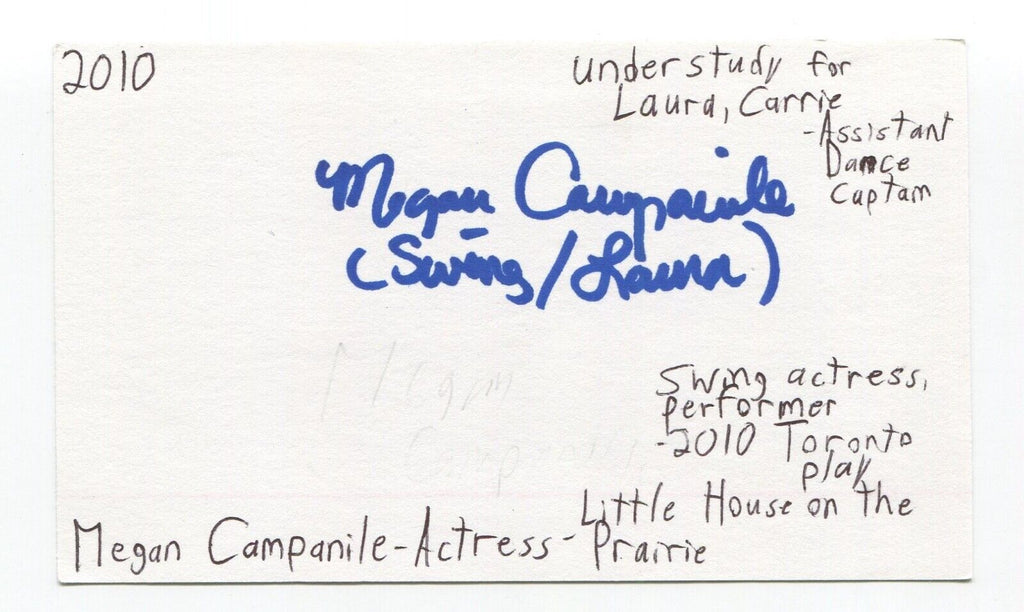 2010
Understudy for
Laura, Carrie
-Assistant
Dance
Captain
Megan Campanile
(Swing/Laura)
Megan
Campanile
Swing actress,
performer
-2010 Toronto
play
Little House on the
Megan Campanile-Actress-Prairie